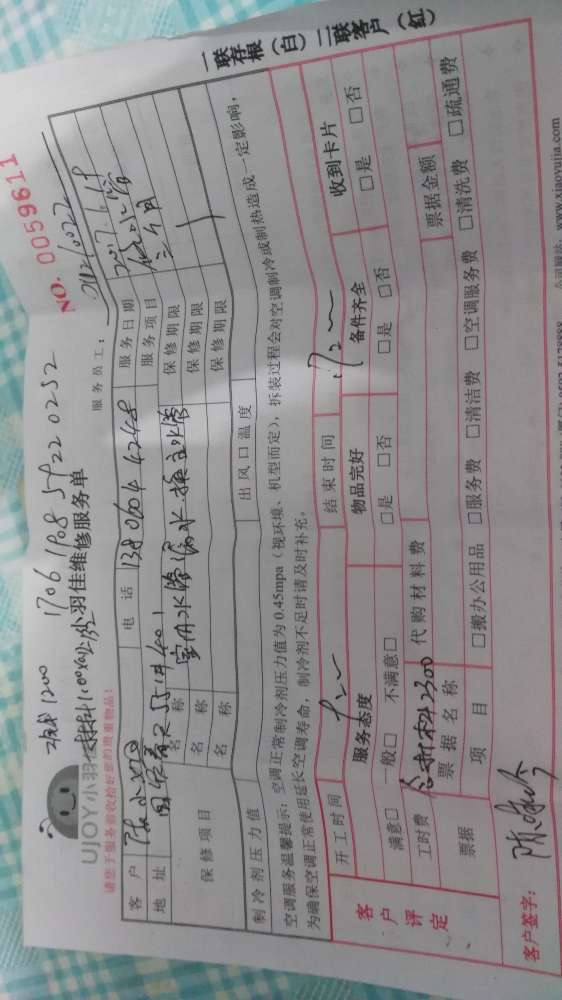 工钱1200
1706 1908 5922 0252
NO. 0059611
UJOY小羽佳维修服务单
请您于服务前收给好您的贵重物品:
服务员工:
客户
电话 138 0604 4248
服务日期 2017
地址 401
服务项目
保修项目
名称 室内水管漏水换主水管
保修期限 三个月
名称
保修期限
名称
保修期限
制冷剂压力值
出风口温度
空调服务温馨提示:空调正常制冷剂压力值为0.45mpa(视环境、机型而定),拆装过程会对空调制冷或制热造成一定影响,
为确保空调正常使用延长空调寿命,制冷剂不足时请及时补充。
开工时间
结束时间
客户评定
服务态度
物品完好
备件齐全
收到卡片
满意□ 一般□ 不满意□
□是 □否
□是 □否
□是 □否
工时费 含材料2300
代购材料费
票据
票据名称
票据金额
项目
□搬办公用品 □服务费 □清洁费 □空调服务费 □清洗费 □疏通费
客户签字:
公司网址:www.xiaoyujia.com
一联存根(白) 二联客户(红)